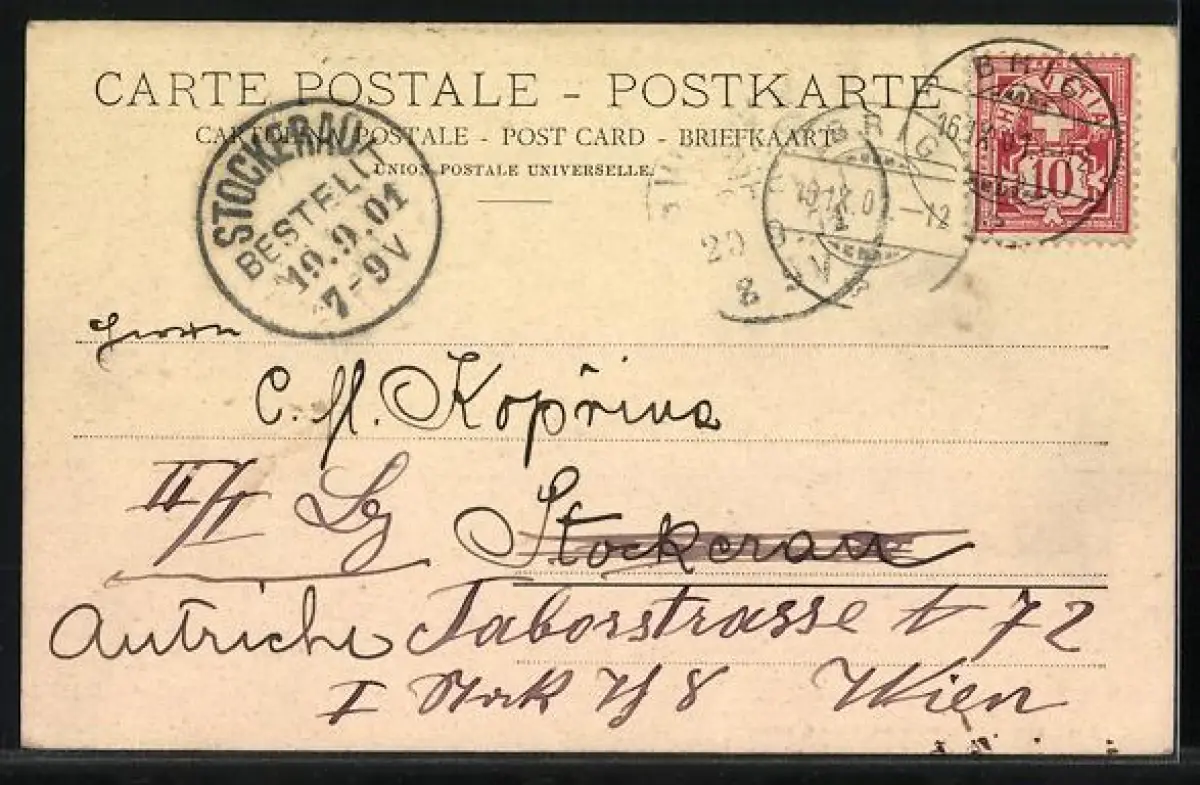 CARTE POSTALE - POSTKARTE
CARTOLINA POSTALE - POST CARD - BRIEFKAART
UNION POSTALE UNIVERSELLE.
STOCKERAU
BESTELLT
19.9.01
7-9V
10
16.IX.01
-12
20
8
Herrn
C. M. Kopřiva
II/I
Stockerau
Autriche Taborstrasse 72
I Stock 8 Wien